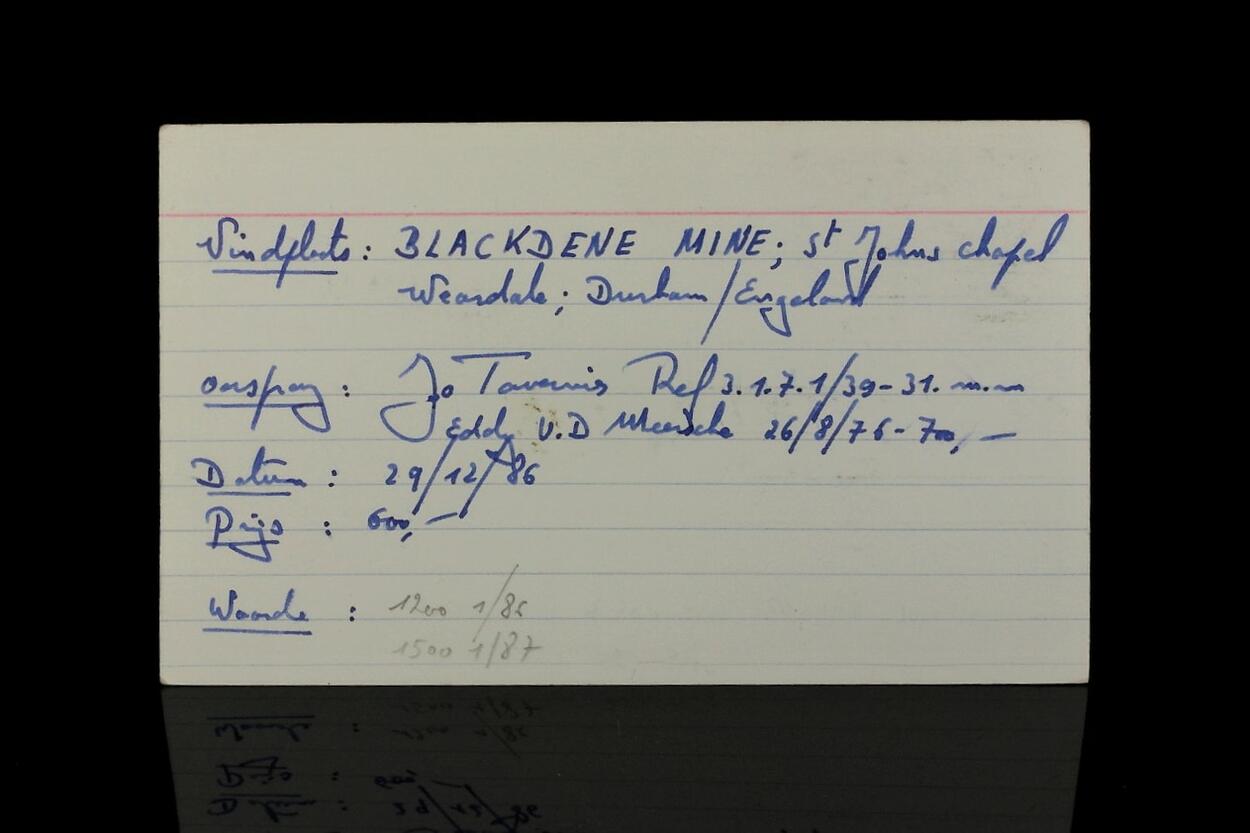 Vindplaats: BLACKDENE MINE; St Johns chapel
Weardale; Durham/Engeland
oorsprong: Jo Tavernier Ref 3.1.7.1/39-31. m.m
Eddy V.D Meersche 26/8/76-700,—
Datum: 29/12/86
Prijs: 600,—
Waarde: 1200 1/86
1500 1/87